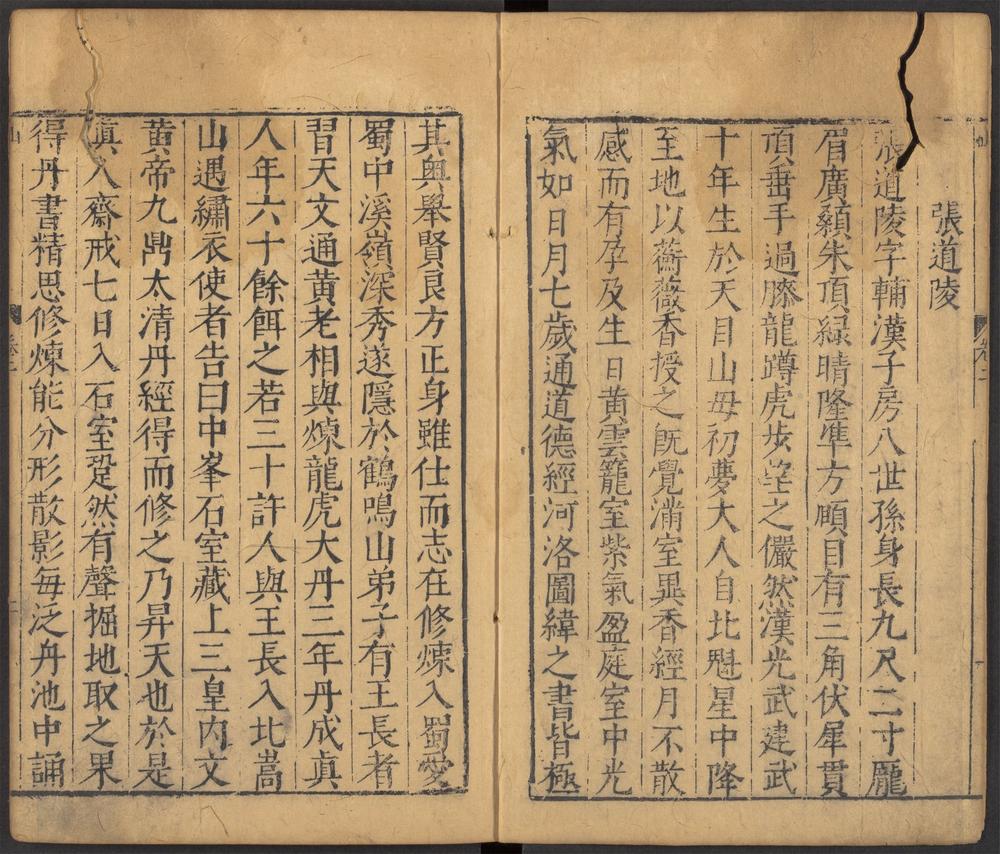 張道陵
張道陵字輔漢子房八世孫身長九尺二寸龎
眉廣顙朱頂緑睛隆凖方頤目有三角伏犀貫
頂垂手過膝龍蹲虎步望之儼然漢光武建武
十年生於天目山毋初夢大人自北魁星中降
至地以蘅薇香授之旣覺滿室異香經月不散
感而有孕及生日黄雲籠室紫氣盈庭室中光
氣如日月七歲通道德經河洛圖緯之書皆極
其奥舉賢良方正身雖仕而志在修煉入蜀愛
蜀中溪嶺深秀遂隱於鶴鳴山弟子有王長者
習天文通黄老相與煉龍虎大丹三年丹成真
人年六十餘餌之若三十許人與王長入北嵩
山遇繡衣使者告曰中峯石室藏上三皇内文
黄帝九鼎太清丹經得而修之乃昇天也於是
真人齋戒七日入石室跫然有聲掘地取之果
得丹書精思修煉能分形散影毎泛舟池中誦